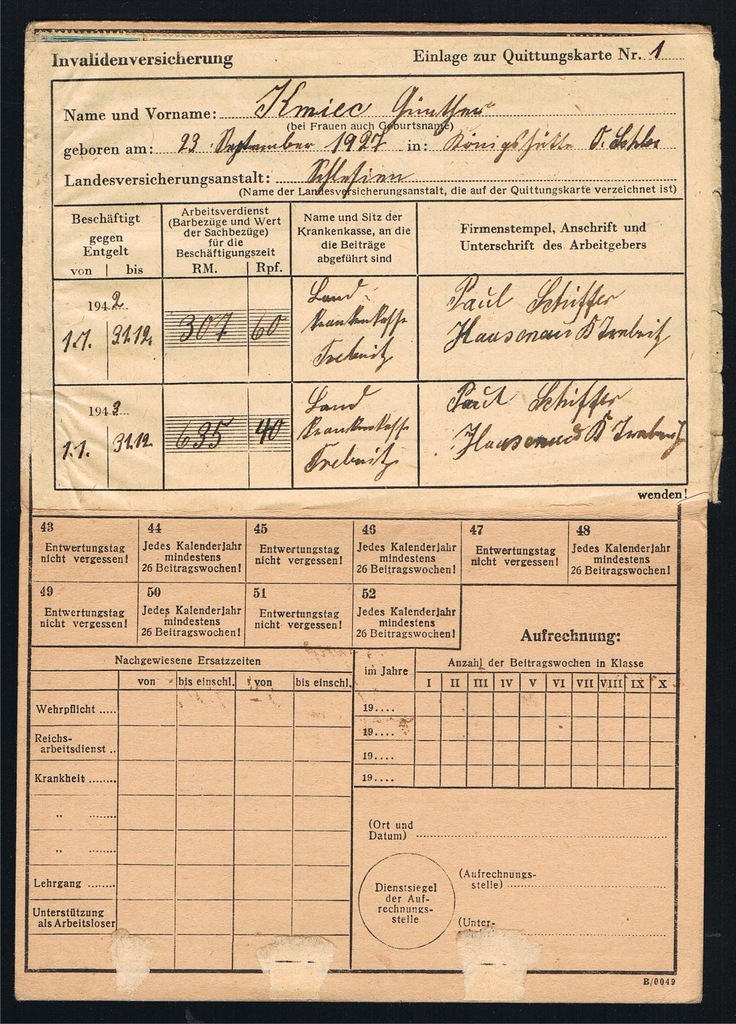 Invalidenversicherung Einlage zur Quittungskarte Nr. 1
Name und Vorname: Kmiec Günther
(bei Frauen auch Geburtsname)
geboren am: 23 September 1927 in: Königshütte O. Schles
Landesversicherungsanstalt: Schlesien
(Name der Landesversicherungsanstalt, die auf der Quittungskarte verzeichnet ist)
Beschäftigt gegen Entgelt von | bis
Arbeitsverdienst (Barbezüge und Wert der Sachbezüge) für die Beschäftigungszeit RM. Rpf.
Name und Sitz der Krankenkasse, an die die Beiträge abgeführt sind
Firmenstempel, Anschrift und Unterschrift des Arbeitgebers
1942
1.1. 31.12. 307 60
Land
Krankenkasse
Trebnitz
Paul Schiffer
Haasenau K Trebnitz
1943
1.1. 31.12 635 40
Land
Krankenkasse
Trebnitz
Paul Schiffer
Haasenau K Trebnitz
wenden!
43 Entwertungstag nicht vergessen!
44 Jedes Kalenderjahr mindestens 26 Beitragswochen!
45 Entwertungstag nicht vergessen!
46 Jedes Kalenderjahr mindestens 26 Beitragswochen!
47 Entwertungstag nicht vergessen!
48 Jedes Kalenderjahr mindestens 26 Beitragswochen!
49 Entwertungstag nicht vergessen!
50 Jedes Kalenderjahr mindestens 26 Beitragswochen!
51 Entwertungstag nicht vergessen!
52 Jedes Kalenderjahr mindestens 26 Beitragswochen!
Nachgewiesene Ersatzzeiten
von bis einschl. von bis einschl.
Wehrpflicht .....
Reichs-
arbeitsdienst ..
Krankheit ........
„ ........
„ ........
Lehrgang ........
Unterstützung
als Arbeitsloser
Aufrechnung:
im Jahre Anzahl der Beitragswochen in Klasse
I II III IV V VI VII VIII IX X
19....
19....
19....
19....
(Ort und
Datum)
Dienstsiegel
der Auf-
rechnungs-
stelle
(Aufrechnungs-
stelle)
(Unter-
B/0049